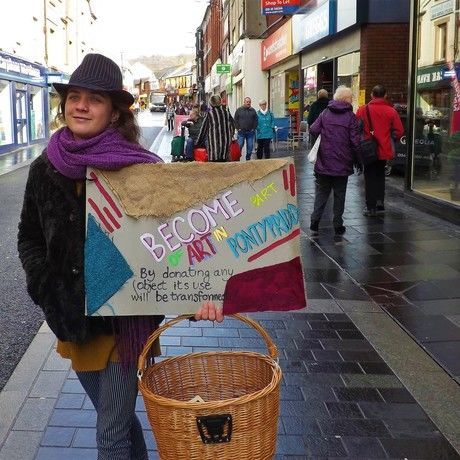 BECOME PART
OF ART IN PONTYPRIDD
By donating any
object it's use
will be transformed
SHOP TO